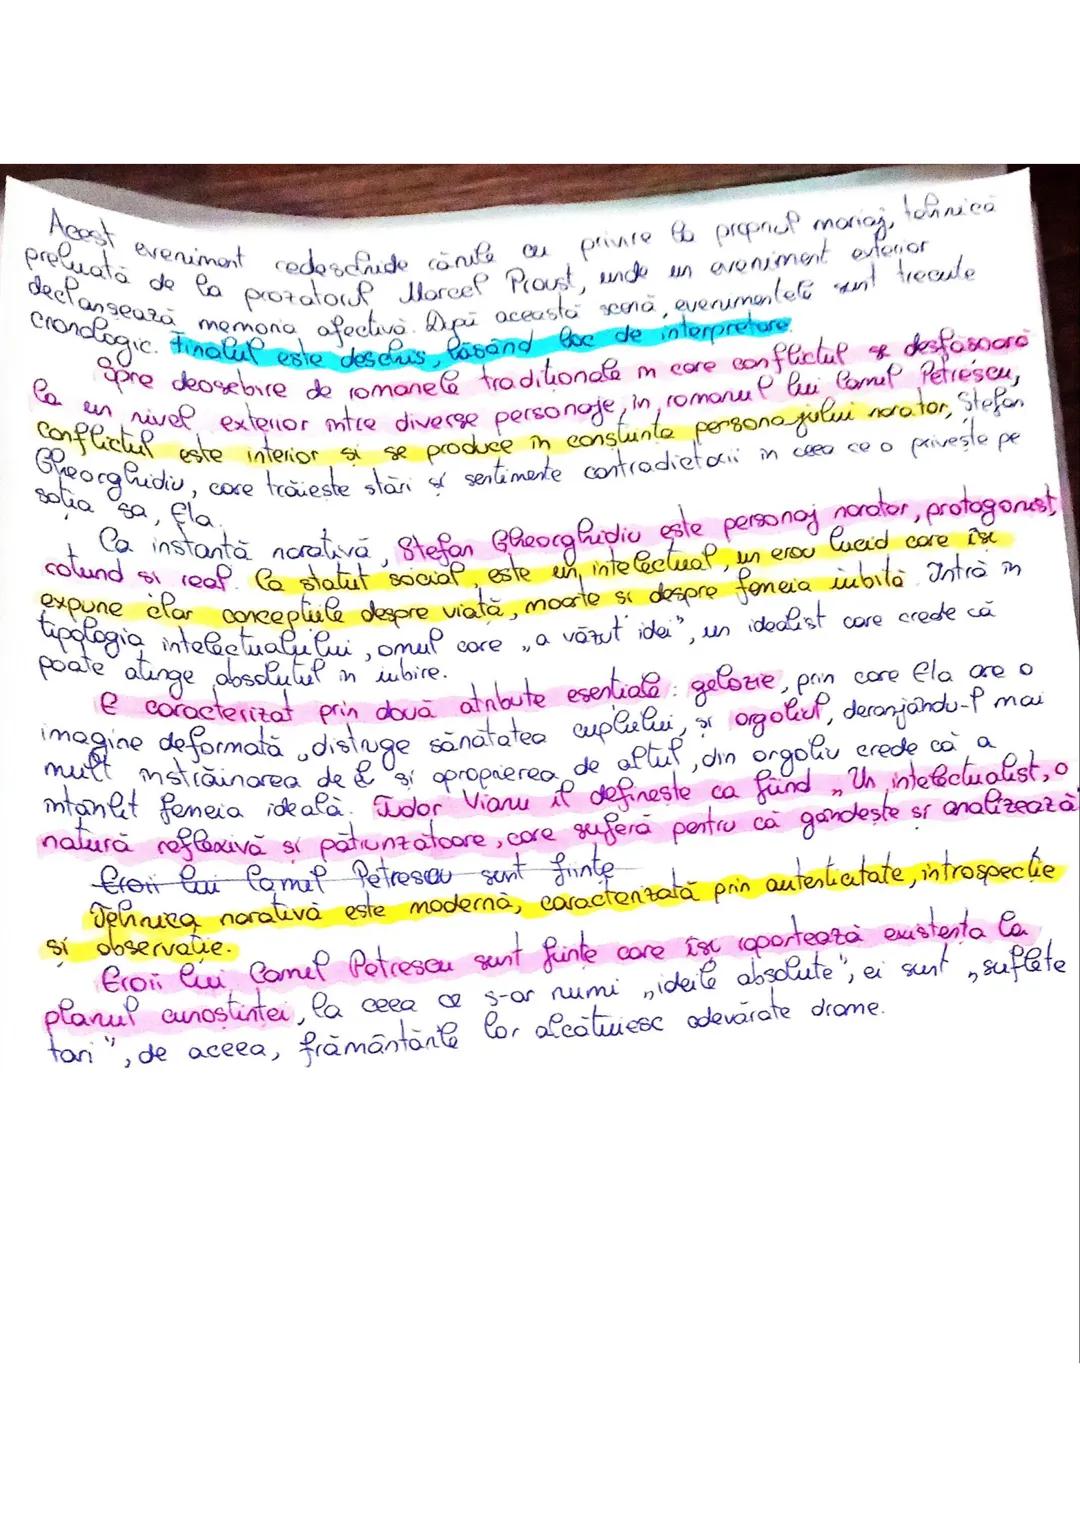 Acest eveniment redeschide rănile cu privire la propriul mariaj, tehnică
preluată de la prozatorul Marcel Proust, unde un eveniment exterior
declansează memoria afectivă. După această scenă, evenimentele sunt trecute
cronologic. Finalul este deschis, lăsând loc de interpretare.
Spre deosebire de romanele traditionale în care conflictul se desfasoară
la un nivel exterior între diverse personaje, în romanul lui Camil Petrescu,
conflictul este interior si se produce în constiinta personajului narator, Stefan
Gheorghidiu, care trăieste stări si sentimente contradictorii în ceea ce o priveste pe
sotia sa, Ela.
Ca instantă narativă, Stefan Gheorghidiu este personaj narator, protagonist,
rotund si real. Ca statut social, este un intelectual, un erou lucid care îsi
expune clar conceptiile despre viată, moarte si despre femeia iubită. Intră în
tipologia intelectualului, omul care „a văzut idei", un idealist care crede că
poate atinge absolutul în iubire.
E caracterizat prin două atribute esentiale: gelozie, prin care Ela are o
imagine deformată, distruge sănătatea cuplului, si orgoliul, deranjându-l mai
mult înstrăinarea de E si apropierea de altul, din orgoliu crede că a
întânlit femeia ideală. Tudor Vianu îl defineste ca fiind „Un intelectualist, o
natură reflexivă si pătrunzătoare, care suferă pentru că gândeste si analizează
Eroii lui Camil Petrescu sunt fiinte
Tehnica narativă este modernă, caracterizată prin autenticitate, introspectie
si observatie.
Eroii lui Camil Petrescu sunt fiinte care îsi raportează existenta la
planul cunostintei, la ceea ce s-ar numi „ideile absolute", ei sunt „suflete
tari", de aceea, frământările lor alcătuiesc adevărate drame.